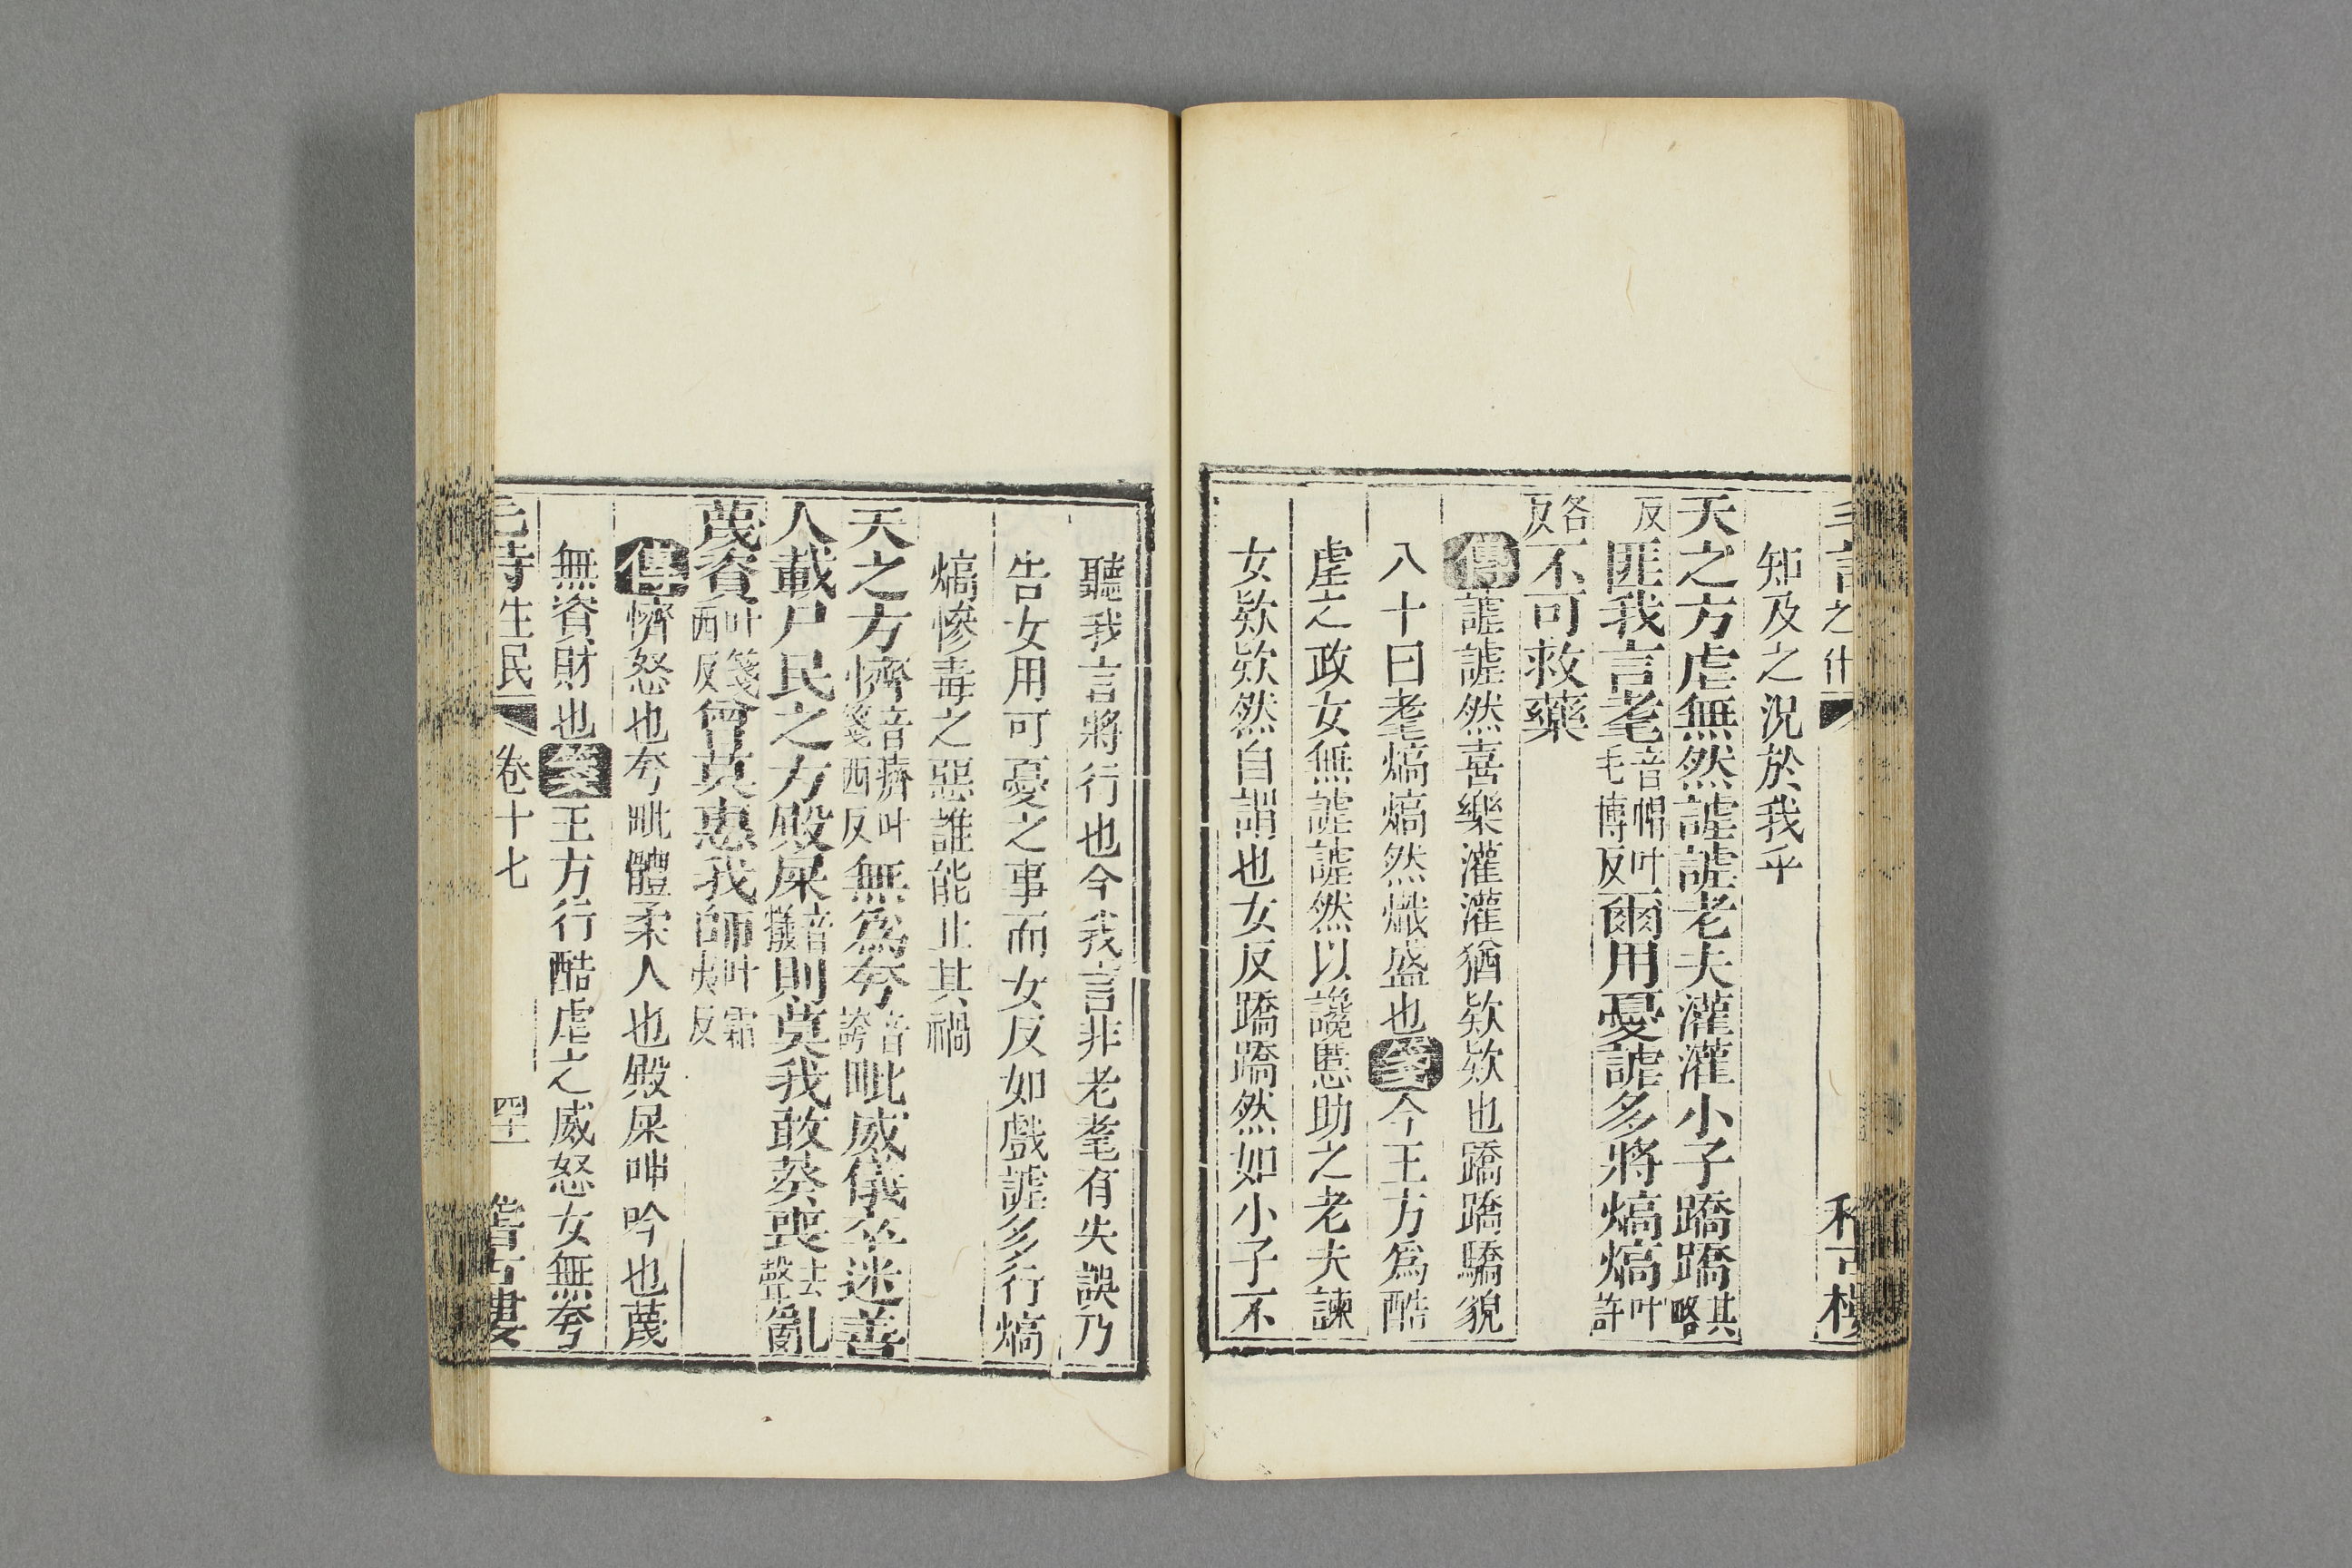 之什
知及之況於我乎
天之方虐無然謔謔老夫灌灌小子蹻蹻其略
反匪我言耄音帽叶毛博反爾用憂謔多將熇熇叶許
各反不可救藥
傳謔謔然喜樂灌灌猶欵欵也蹻蹻驕貌
八十曰耄熇熇然熾盛也箋今王方爲酷
虐之政女無謔謔然以讒慝助之老夫諫
女欵欵然自謂也女反蹻蹻然如小子不
聽我言將行也今我言非老耄有失誤乃
告女用可憂之事而女反如戲謔多行熇
熇慘毒之惡誰能止其禍
天之方懠音擠叶箋西反無爲夸音誇毗威儀卒迷善
人載尸民之方殿屎音犧則莫我敢葵喪去聲亂
蔑資叶箋西反曾莫惠我師叶霜夷反
傳懠怒也夸毗體柔人也殿屎呻吟也蔑
無資財也箋王方行酷虐之威怒女無夸
毛詩生民 卷十七